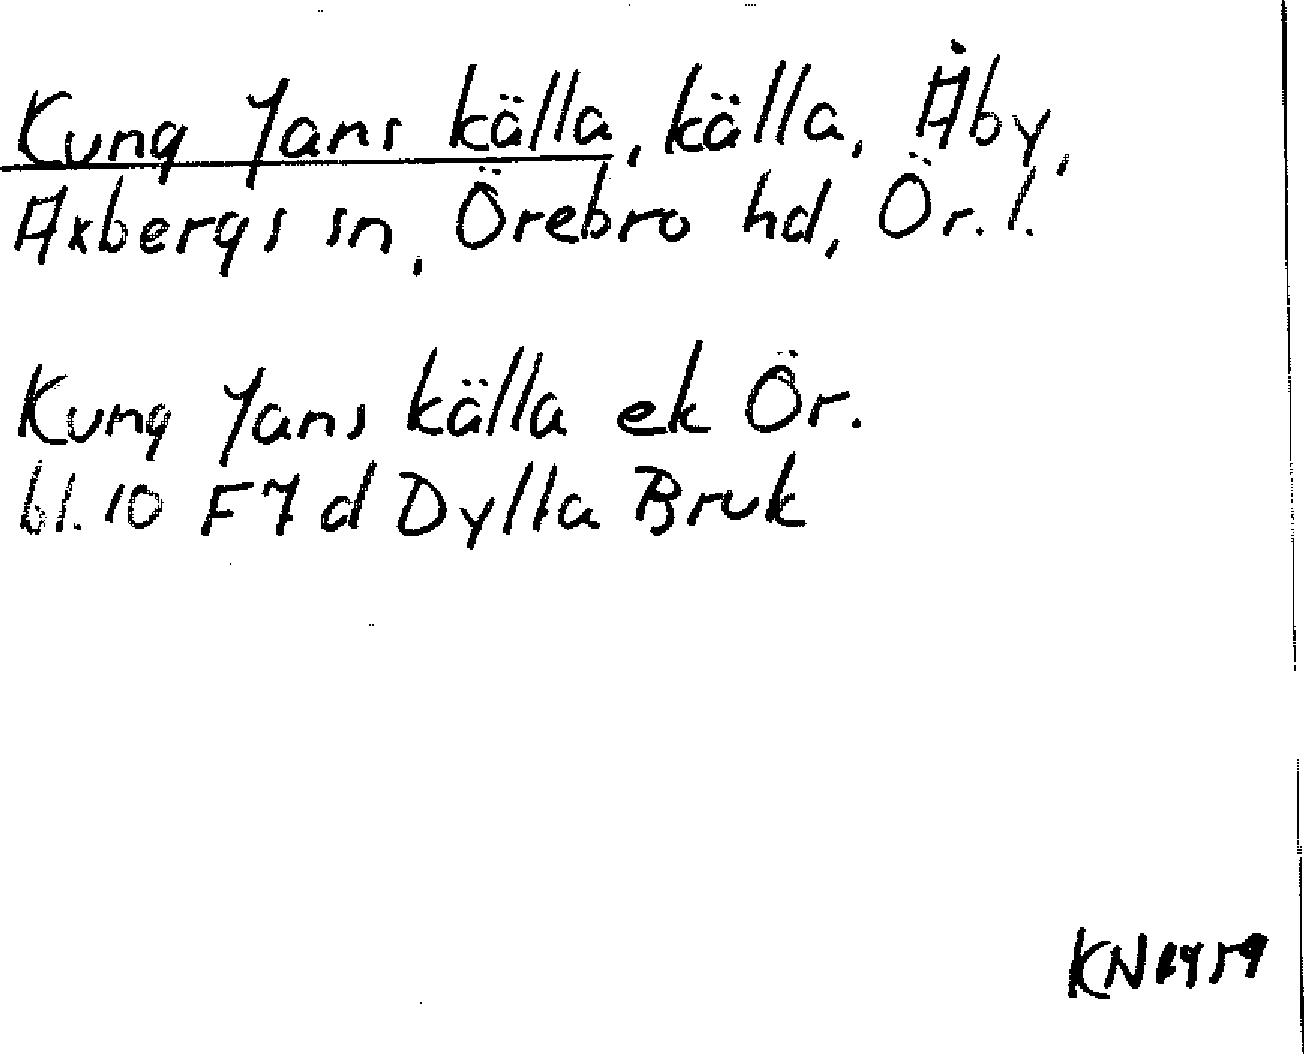 Kung Jans källa, källa, Åby,
Axbergs sn, Örebro hd, Ör. l.
Kung Jans källa ek Ör.
bl. 10 F7d Dylla Bruk